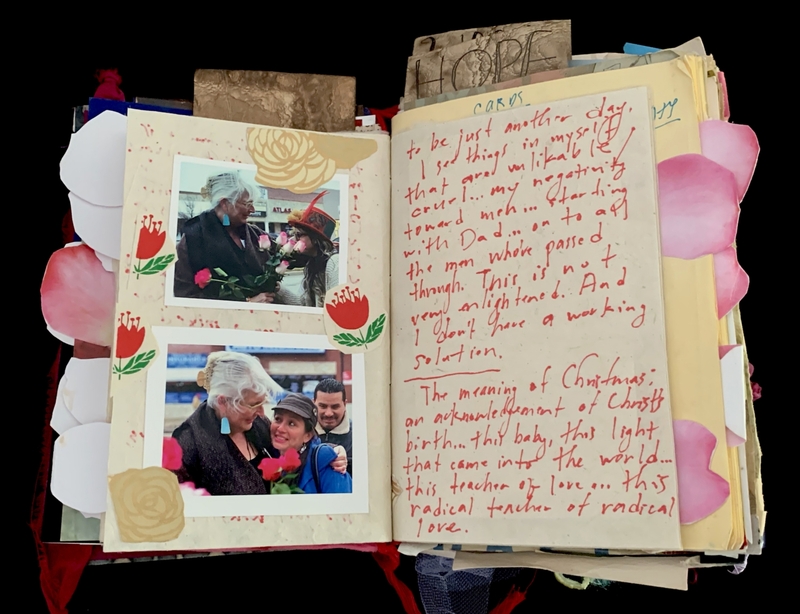 ATLAS
HOPE
CARDS
to be just another day.
I see things in myself
that are unlikable,
cruel... my negativity
toward men... starting
with Dad.. on to all
the men who've passed
through. This is not
very enlightened. And
I don't have a working
solution.
The meaning of Christmas:
an acknowledgement of Christ's
birth... this baby, this light
that came into the world...
this teacher of love... this
radical teacher of radical
love.